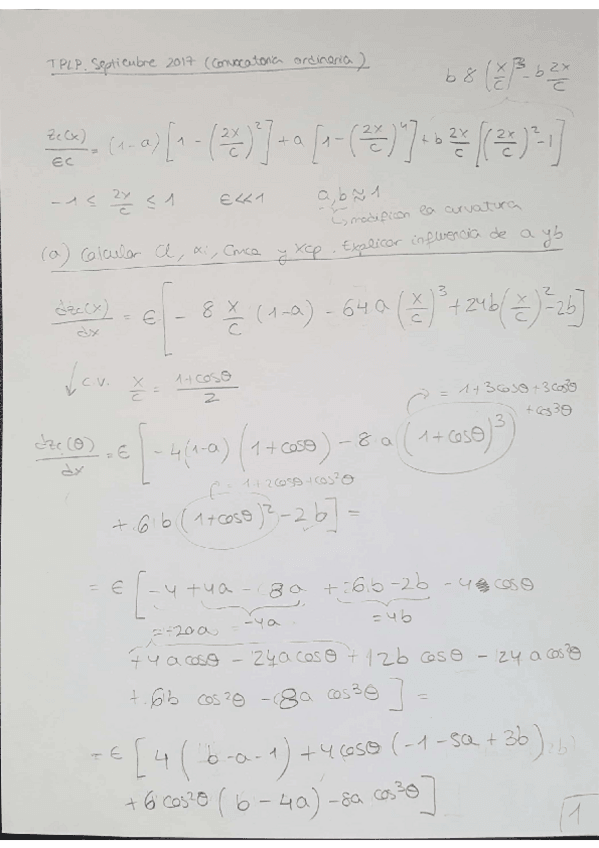 TPLP. Septiembre 2017 (Convocatoria ordinaria)
b 8 (x/c)^3 - b 2x/c
zc(x)/εc = (1-a) [1 - (2x/c)^2] + a [1 - (2x/c)^4] + b 2x/c [(2x/c)^2 - 1]
-1 ≤ 2x/c ≤ 1 ε<<1 a, b ≈ 1
↳ modifican la curvatura
(a) Calcular Cl, αi, Cmca y Xcp. Explicar influencia de a y b
dzc(x)/dx = ε [- 8 x/c (1-a) - 64 a (x/c)^3 + 24b (x/c)^2 - 2b]
↓ c.v. x/c = (1+cosθ)/2
= 1+3cosθ+3cos²θ
+cos³θ
dzc(θ)/dx = ε [-4(1-a) (1+cosθ) - 8 a (1+cosθ)^3
= 1+2cosθ+cos²θ
+ 6 b (1+cosθ)^2 - 2 b] =
= ε [-4 + 4a - 8a + 6b - 2b - 4 cosθ
= -4a = 4b
+ 4 a cosθ - 24a cosθ + 12b cosθ - 24 a cos²θ
+ 6b cos²θ - 8a cos³θ] =
= ε [4 ( b - a - 1) + 4 cosθ (-1 - 5a + 3b)
+ 6 cos²θ (b - 4a) - 8a cos³θ]
1